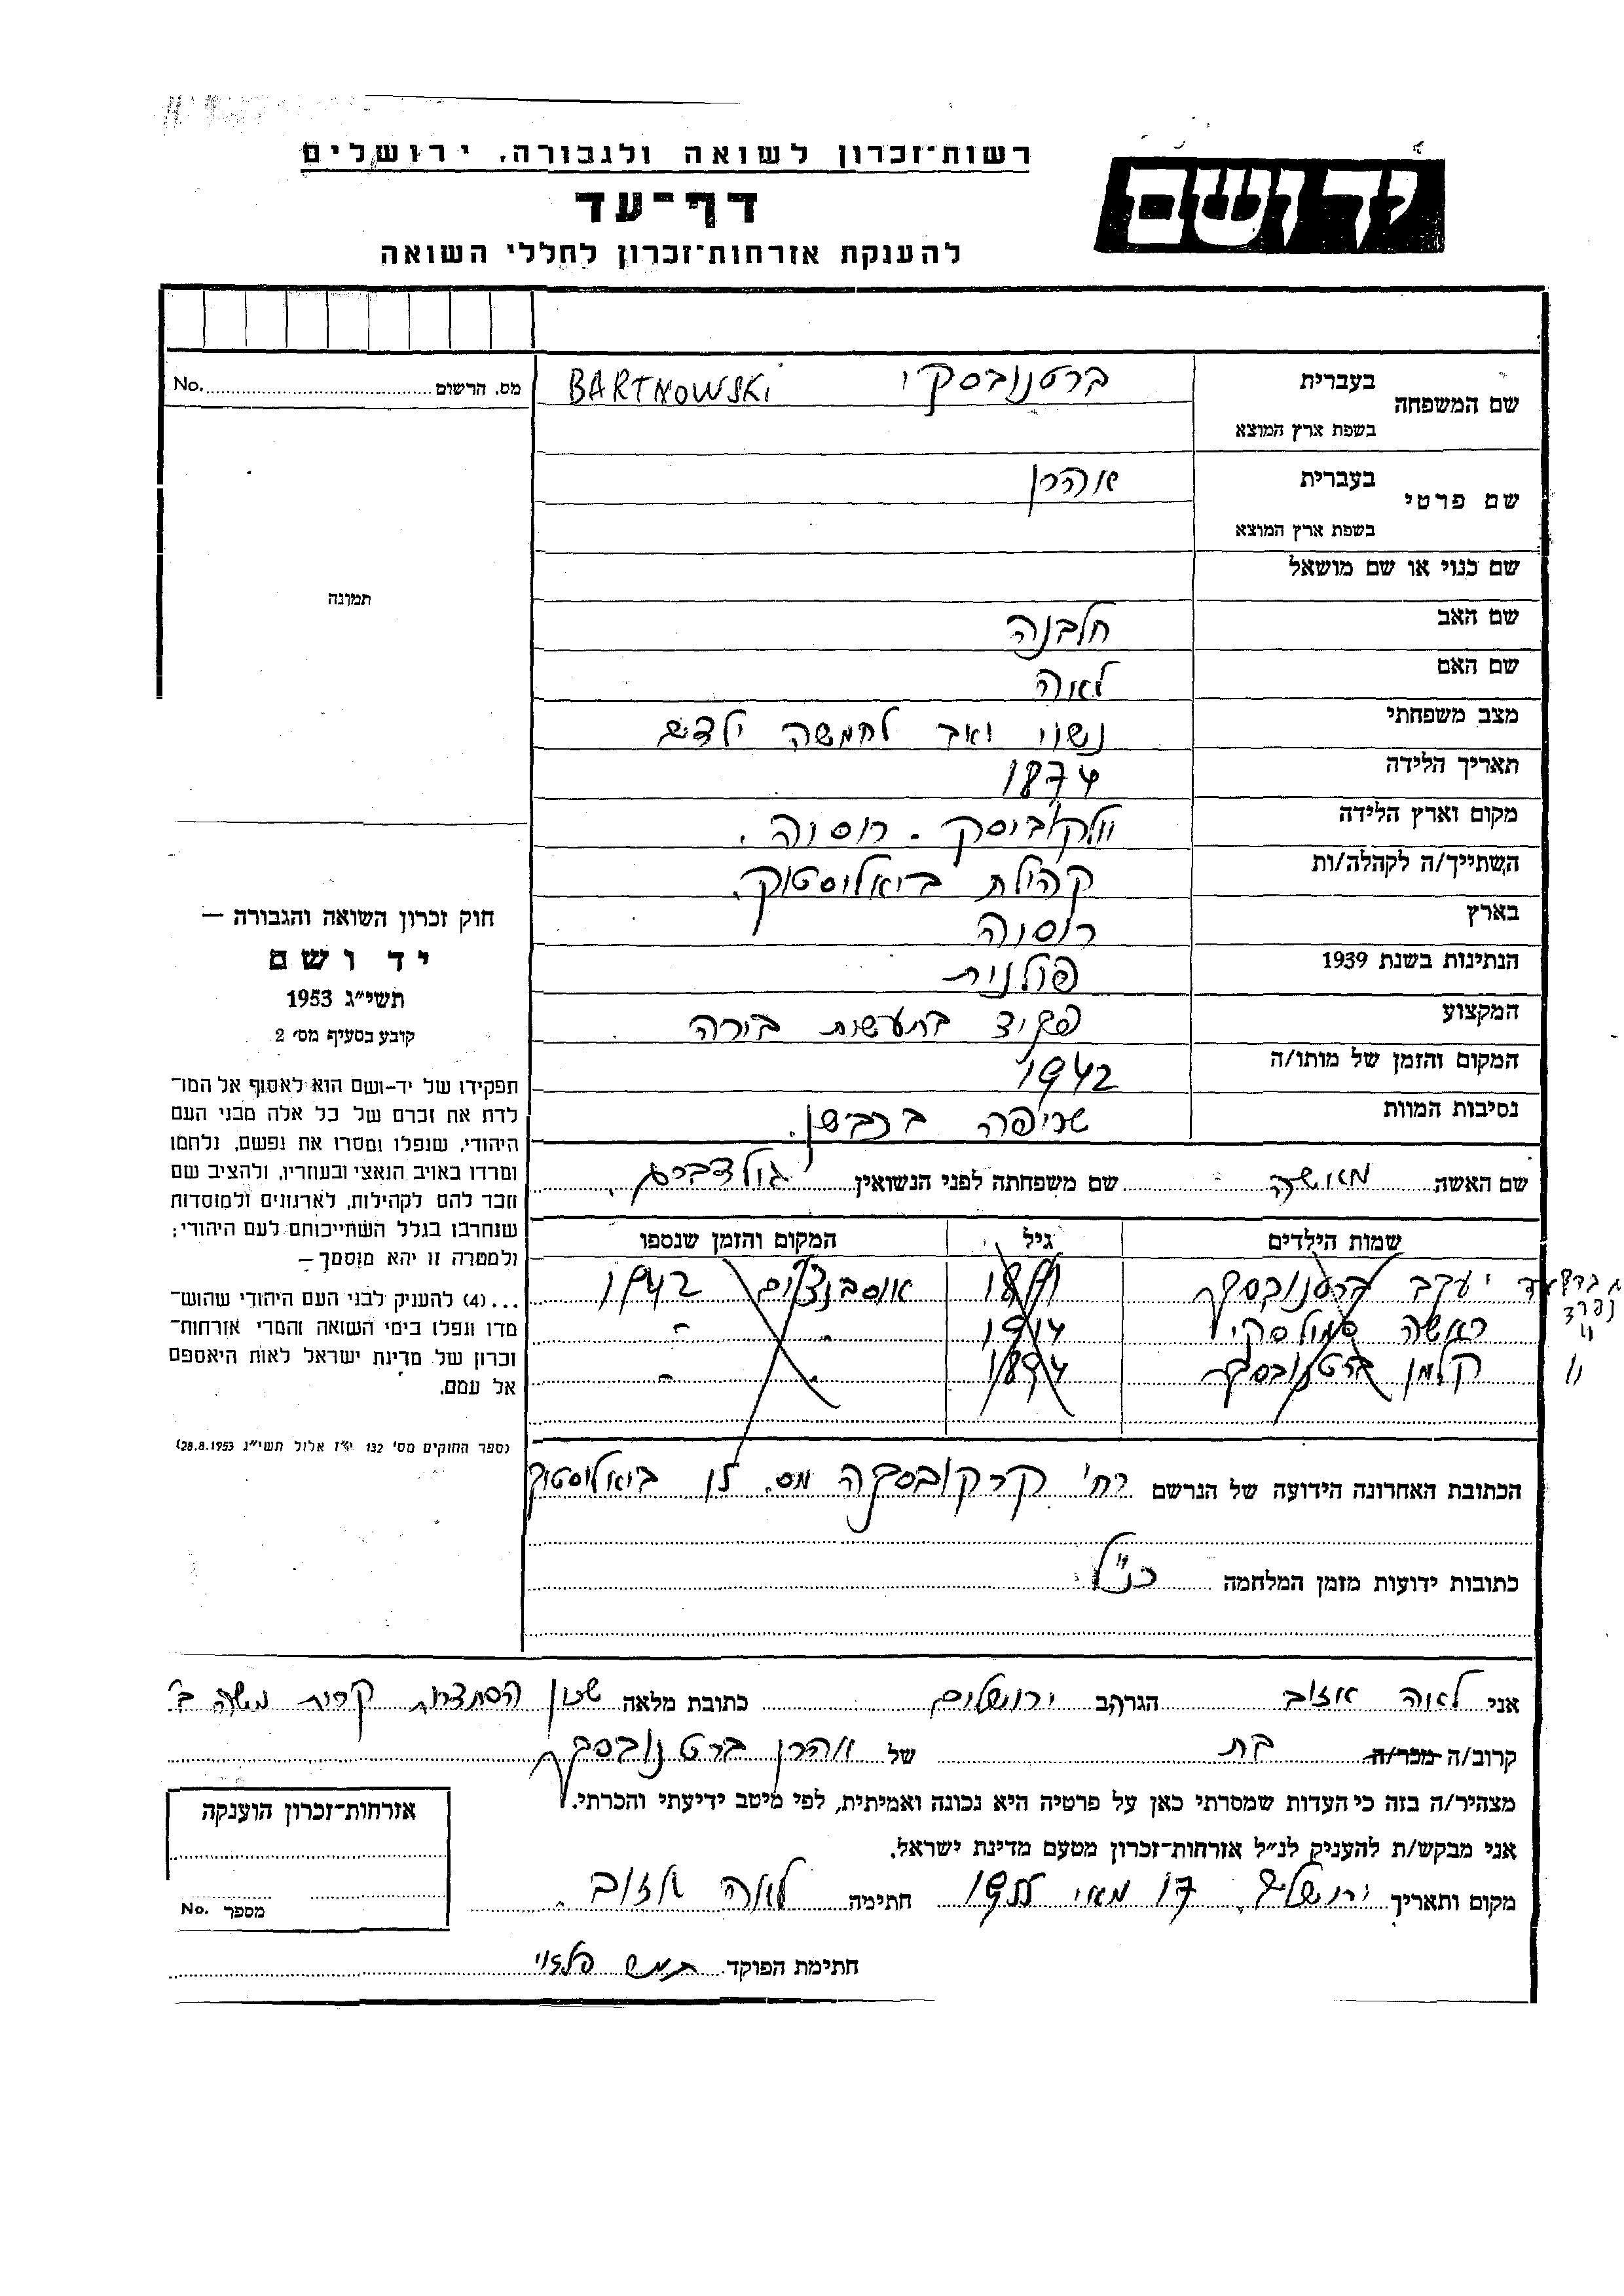 רשות־זכרון לשואה ולגבורה, ירושלים
יד ושם
דף־עד
להענקת אזרחות־זכרון לחללי השואה
מס. הרשום No.
תמונה
שם המשפחה בעברית ברטנובסקי BARTNOWSKI
בשפת ארץ המוצא
שם פרטי בעברית אהרן
בשפת ארץ המוצא
שם כנוי או שם מושאל
שם האב חלבנה
שם האם לאה
מצב משפחתי נשוי ואב לחמשה ילדים
תאריך הלידה 1874
מקום וארץ הלידה וולקוביסק - רוסיה.
השתייך/ה לקהלה/ות קהילת ביאליסטוק.
בארץ רוסיה
הנתינות בשנת 1939 פולנית
המקצוע פקיד בתעשית בירה
המקום והזמן של מותו/ה 1942
נסיבות המוות שריפה בכבשן.
שם האשה מאשה שם משפחתה לפני הנשואין גולדברג.
שמות הילדים גיל המקום והזמן שנספו
יעקב ברטנובסקי אוסבנצים 1942
ראשה סמולסקי 1914 " "
קלמן ברטנובסקי 1894 " "
הכתובת האחרונה הידועה של הנרשם רח' קרקובסקה מס. ביאליסטוק
כתובות ידועות מזמן המלחמה כנ"ל
חוק זכרון השואה והגבורה —
יד ושם
תשי״ג 1953
קובע בסעיף מס׳ 2
תפקידו של יד-ושם הוא לאסוף אל המו־
לדת את זכרם של כל אלה מבני העם
היהודי, שנפלו ומסרו את נפשם, נלחמו
ומרדו באויב הנאצי ובעוזריו, ולהציב שם
וזכר להם לקהילות, לארגונים ולמוסדות
שנחרבו בגלל השתייכותם לעם היהודי;
ולמטרה זו יהא מוסמך —
...(4) להענק לבני העם היהודי שהוש־
מדו ונפלו בימי השואה והמרי אזרחות־
זכרון של מדינת ישראל לאות היאספם
אל עמם.
(ספר החוקים מס׳ 132 י״ז אלול תשי״ג 28.8.1953)
אני לאה אזוב הגר/ה ב ירושלים כתובת מלאה שכון הסתדרות קרית משה ב'
קרוב/ה מכר/ה בת של אהרן ברטנובסקי
מצהיר/ה בזה כי העדות שמסרתי כאן על פרטיה היא נכונה ואמיתית, לפי מיטב ידיעתי והכרתי.
אני מבקש/ת להעניק לנ״ל אזרחות־זכרון מטעם מדינת ישראל.
מקום ותאריך ירושלים. 17 מאי חתימה לאה אזוב.
חתימת הפוקד
אזרחות־זכרון הוענקה
מספר No.